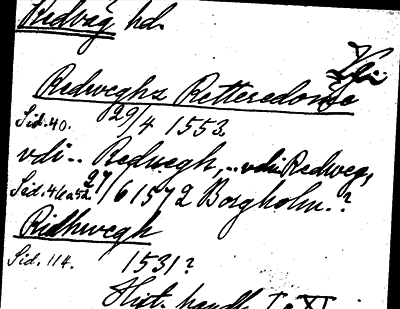 Redväg hd.
Redweghz Retteredome
Sid. 40. 29/4 1553
vdi .. Redwegh, .. vdi Redweg,
Sid. 41a52 27/6 1572 Borgholm.?
Ridhwegh
Sid. 114. 1531?
Hist. handl. I o XI